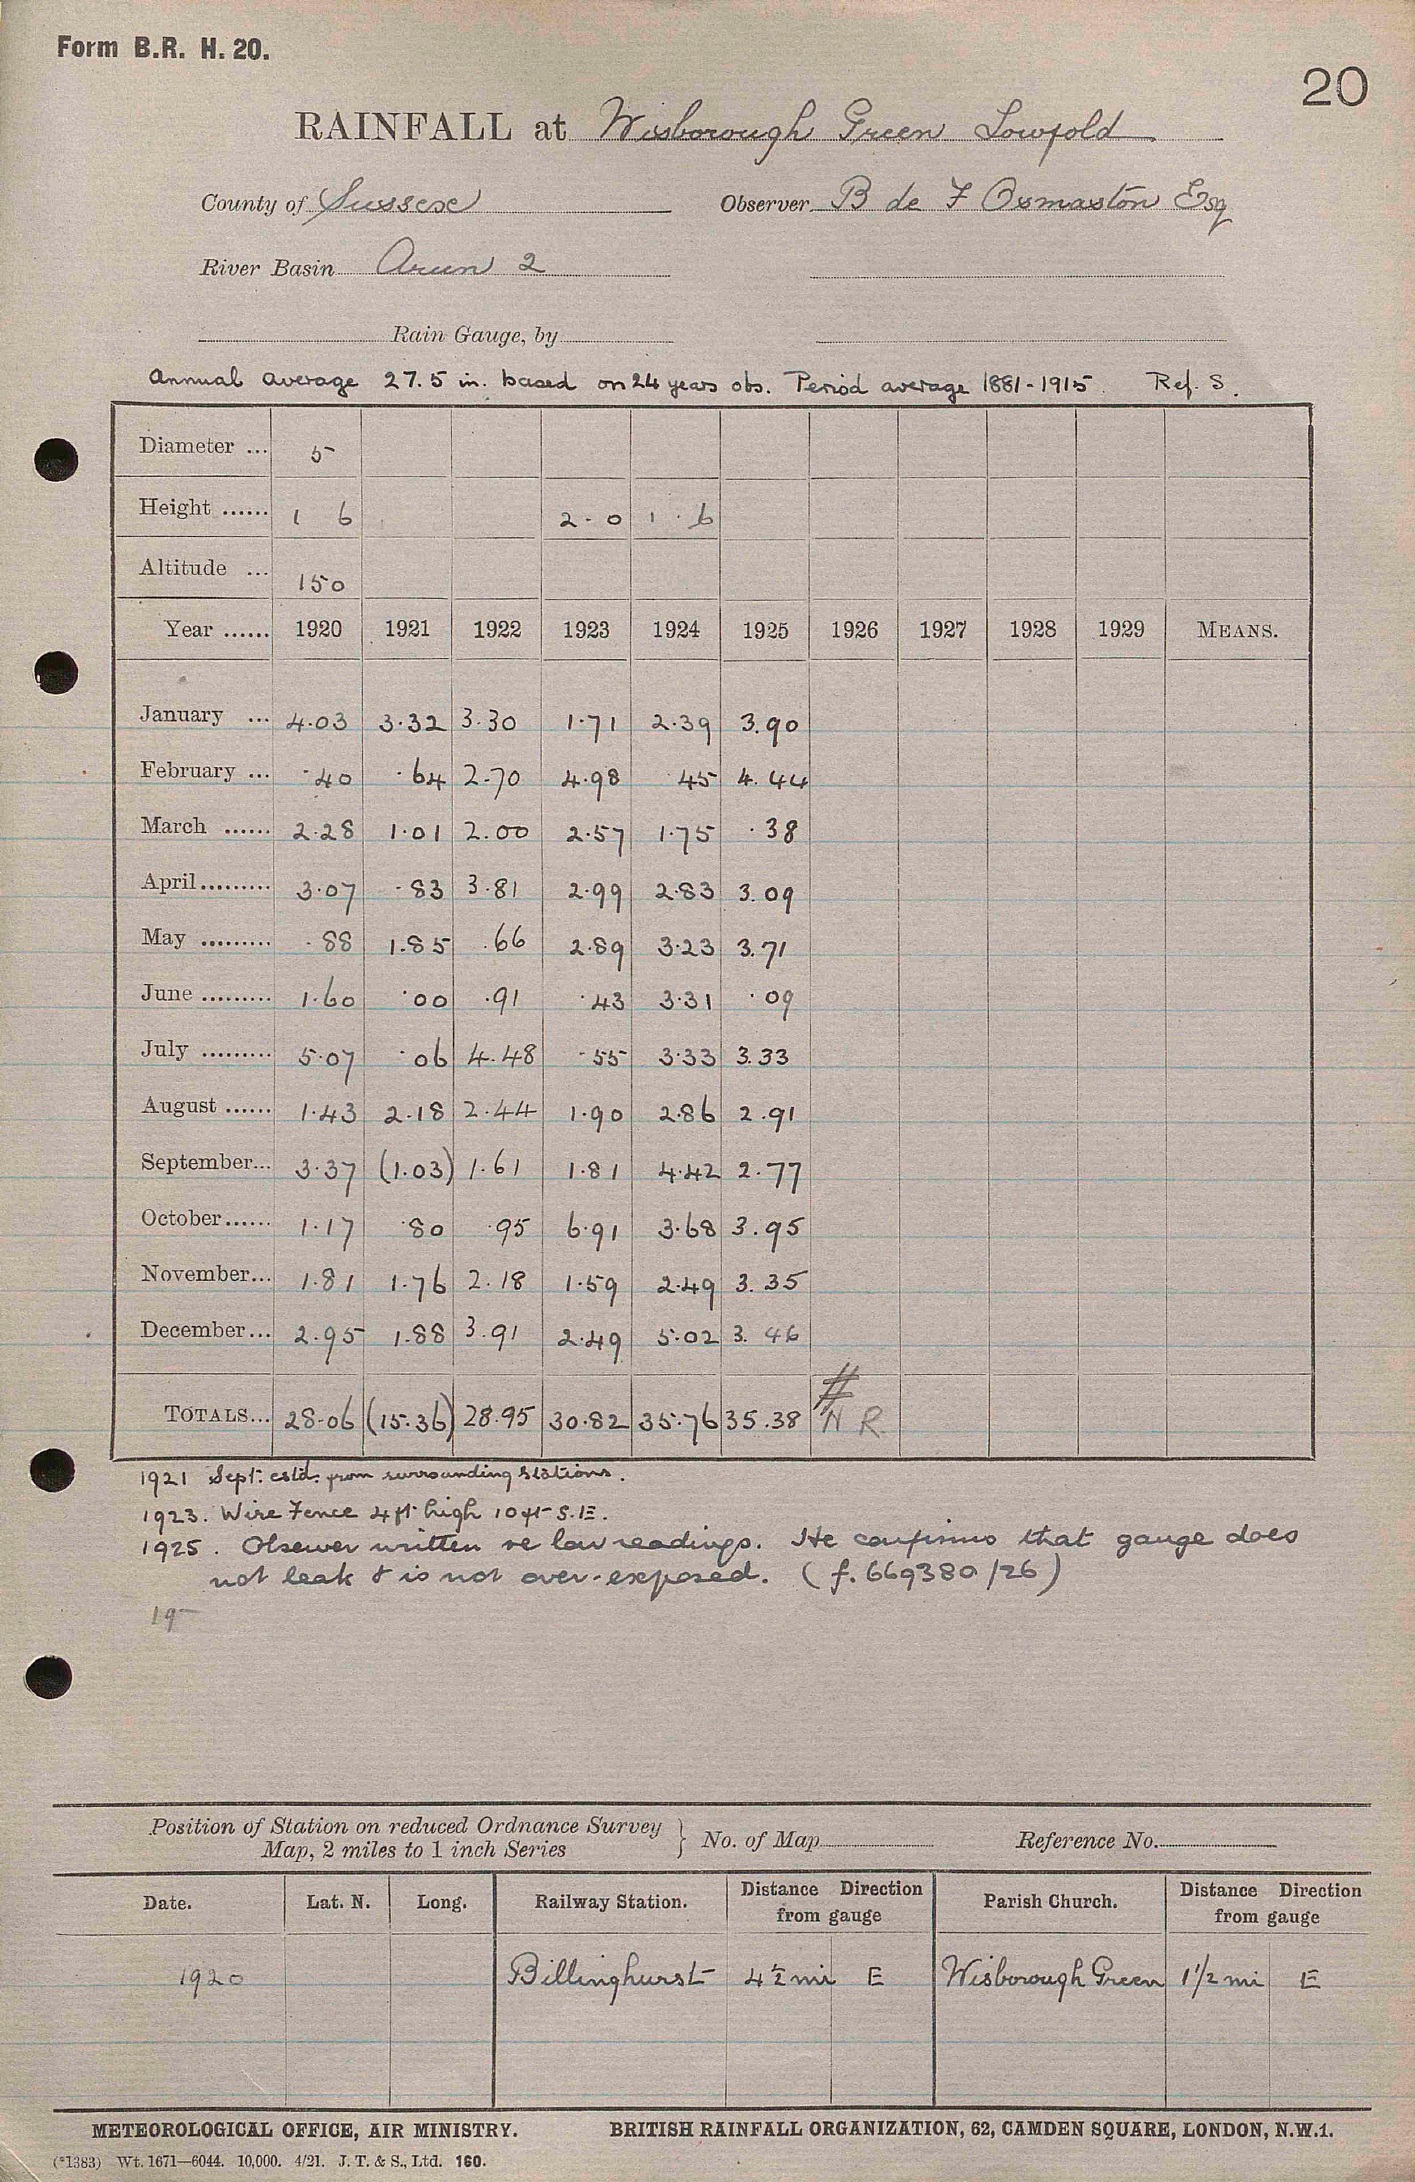 Form B.R. H. 20.
20
RAINFALL at Wisborough Green Lowfold
County of Sussex Observer B de F Osmaston Esq
River Basin Arun 2
Rain Gauge, by
Annual Average 27.5 in. based on 24 years obs. Period average 1881-1915. Ref. S.
Diameter ... 5
Height ...... 1 6 2-0 1.6
Altitude ... 150
Year ...... 1920 1921 1922 1923 1924 1925 1926 1927 1928 1929 MEANS.
January ... 4.03 3.32 3.30 1.71 2.39 3.90
February ... .40 .64 2.70 4.98 45 4.44
March ...... 2.28 1.01 2.00 2.57 1.75 .38
April ......... 3.07 .83 3.81 2.99 2.83 3.09
May ......... .88 1.85 .66 2.89 3.23 3.71
June ......... 1.60 .00 .91 .43 3.31 .09
July ......... 5.07 .06 4.48 .55 3.33 3.33
August ...... 1.43 2.18 2.44 1.90 2.86 2.91
September... 3.37 (1.03) 1.61 1.81 4.42 2.77
October ...... 1.17 .80 .95 6.91 3.68 3.95
November... 1.81 1.76 2.18 1.59 2.49 3.35
December... 2.95 1.88 3.91 2.49 5.02 3.46
TOTALS... 28.06 (15.36) 28.95 30.82 35.76 35.38 # N R
1921 Sept: estd. from surrounding stations.
1923. Wire Fence 4 ft high 10 ft S.E.
1925. Observer written re low readings. He confirms that gauge does
not leak & is not over-exposed. (f. 669380/26)
19-
Position of Station on reduced Ordnance Survey
Map, 2 miles to 1 inch Series } No. of Map Reference No.
Date. Lat. N. Long. Railway Station. Distance Direction from gauge Parish Church. Distance Direction from gauge
1920 Billinghurst 4½ mi E Wisborough Green 1½ mi E
METEOROLOGICAL OFFICE, AIR MINISTRY. BRITISH RAINFALL ORGANIZATION, 62, CAMDEN SQUARE, LONDON, N.W.1.
(*1383) Wt. 1671—6044. 10,000. 4/21. J. T. & S., Ltd. 160.